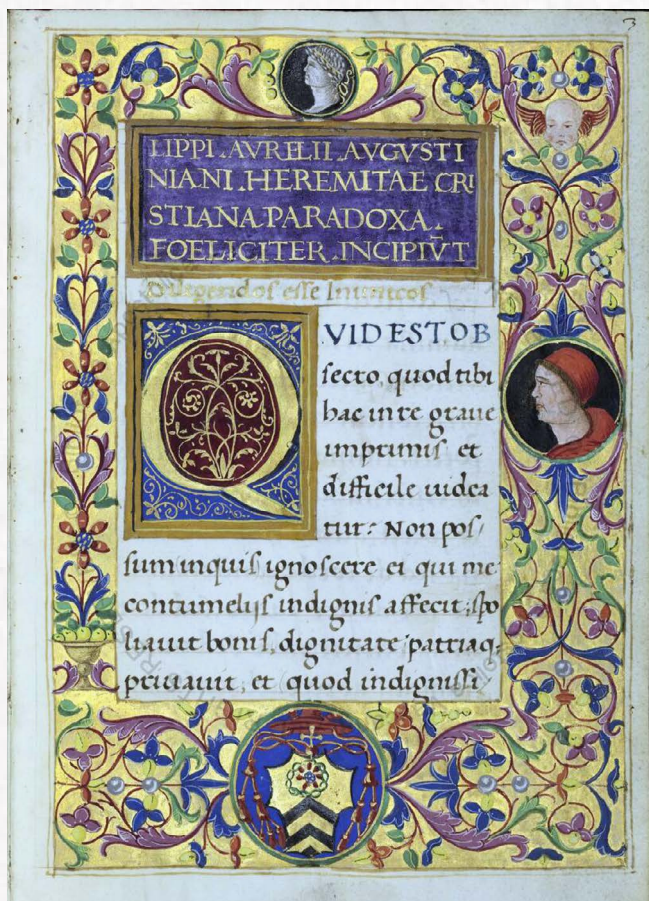 3
LIPPI.AVRELII.AVGVSTI
NIANI.HEREMITAE CRI
STIANA.PARADOXA.
FOELICITER.INCIPIV̄T
Diligendos esse Inimicos
QVID EST OB
secro, quod tibi
hac in re graue
imprimis et
difficile uidea
tur: Non pos/
sum inquis ignoscere ei qui me
contumelijs indignis affecit; spo
liauit bonis, dignitate patriaq;
priuauit, et quod indignissi